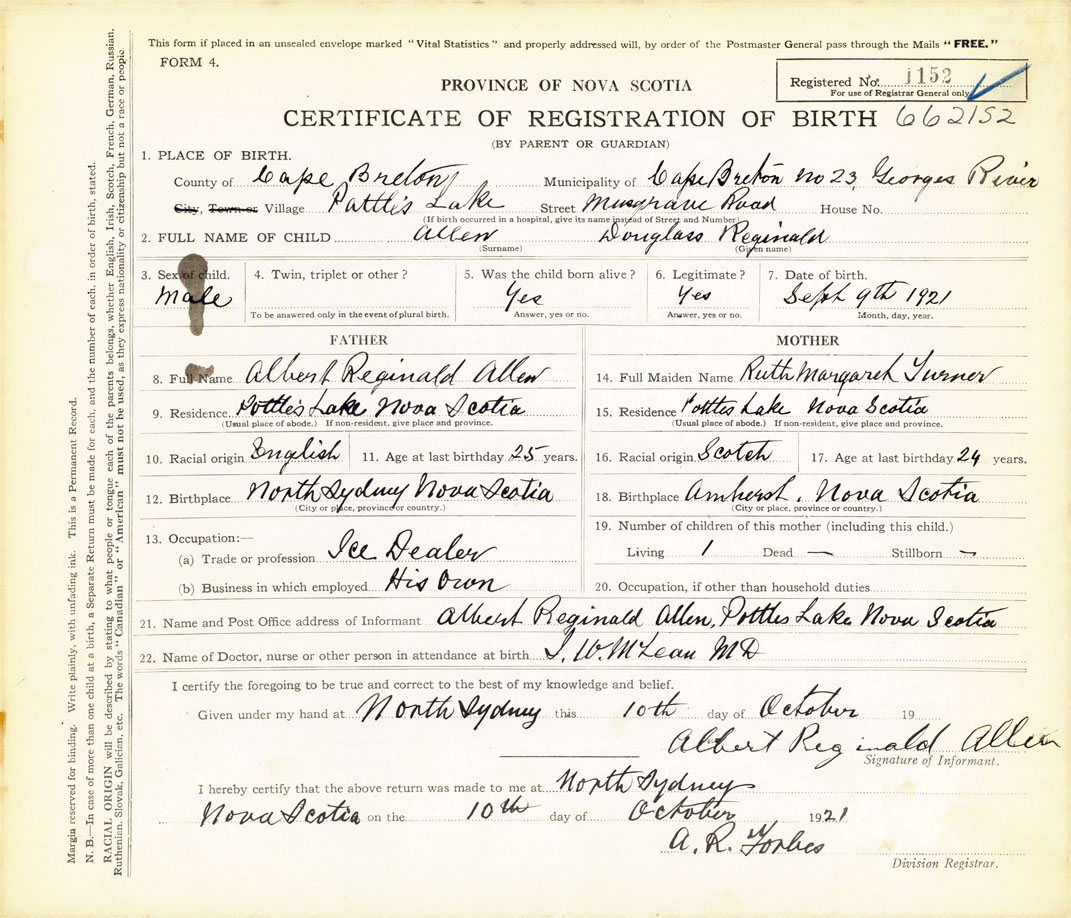 This form if placed in an unsealed envelope marked "Vital Statistics" and properly addressed will, by order of the Postmaster General pass through the Mails "FREE."
FORM 4.
Registered No. 1152
For use of Registrar General only.
PROVINCE OF NOVA SCOTIA
CERTIFICATE OF REGISTRATION OF BIRTH 662152
(BY PARENT OR GUARDIAN)
1. PLACE OF BIRTH.
County of Cape Breton Municipality of Cape Breton No 23, Georges River
City, Town or Village Pattle's Lake Street Musgrave Road House No.
(If birth occurred in a hospital, give its name instead of Street and Number)
2. FULL NAME OF CHILD Allen Douglass Reginald
(Surname) (Given name)
3. Sex of child. 4. Twin, triplet or other? 5. Was the child born alive? 6. Legitimate? 7. Date of birth.
Male Yes Yes Sept 9th 1921
To be answered only in the event of plural birth. Answer, yes or no. Answer, yes or no. Month, day, year.
FATHER MOTHER
8. Full Name Albert Reginald Allen 14. Full Maiden Name Ruth Margaret Turner
9. Residence Pottle's Lake Nova Scotia 15. Residence Pottles Lake Nova Scotia
(Usual place of abode.) If non-resident, give place and province. (Usual place of abode.) If non-resident, give place and province.
10. Racial origin English 11. Age at last birthday 25 years. 16. Racial origin Scotch 17. Age at last birthday 24 years.
12. Birthplace North Sydney Nova Scotia 18. Birthplace Amherst, Nova Scotia
(City or place, province or country.) (City or place, province or country.)
13. Occupation:— 19. Number of children of this mother (including this child.)
(a) Trade or profession Ice Dealer Living 1 Dead — Stillborn —
(b) Business in which employed His Own 20. Occupation, if other than household duties
21. Name and Post Office address of Informant Albert Reginald Allen, Pottles Lake Nova Scotia
22. Name of Doctor, nurse or other person in attendance at birth J. W. McLean MD
I certify the foregoing to be true and correct to the best of my knowledge and belief.
Given under my hand at North Sydney this 10th day of October 19
Albert Reginald Allen
Signature of Informant.
I hereby certify that the above return was made to me at North Sydney
Nova Scotia on the 10th day of October 1921
A. R. Forbes
Division Registrar.
Margin reserved for binding. Write plainly, with unfading ink. This is a Permanent Record.
N. B.—In case of more than one child at a birth, a Separate Return must be made for each, and the number of each, in order of birth, stated.
RACIAL ORIGIN will be described by stating to what people or tongue each of the parents belongs, whether English, Irish, Scotch, French, German, Russian,
Ruthenian, Slovak, Galician, etc. The words "Canadian" or "American" must not be used, as they express nationality or citizenship but not a race or people